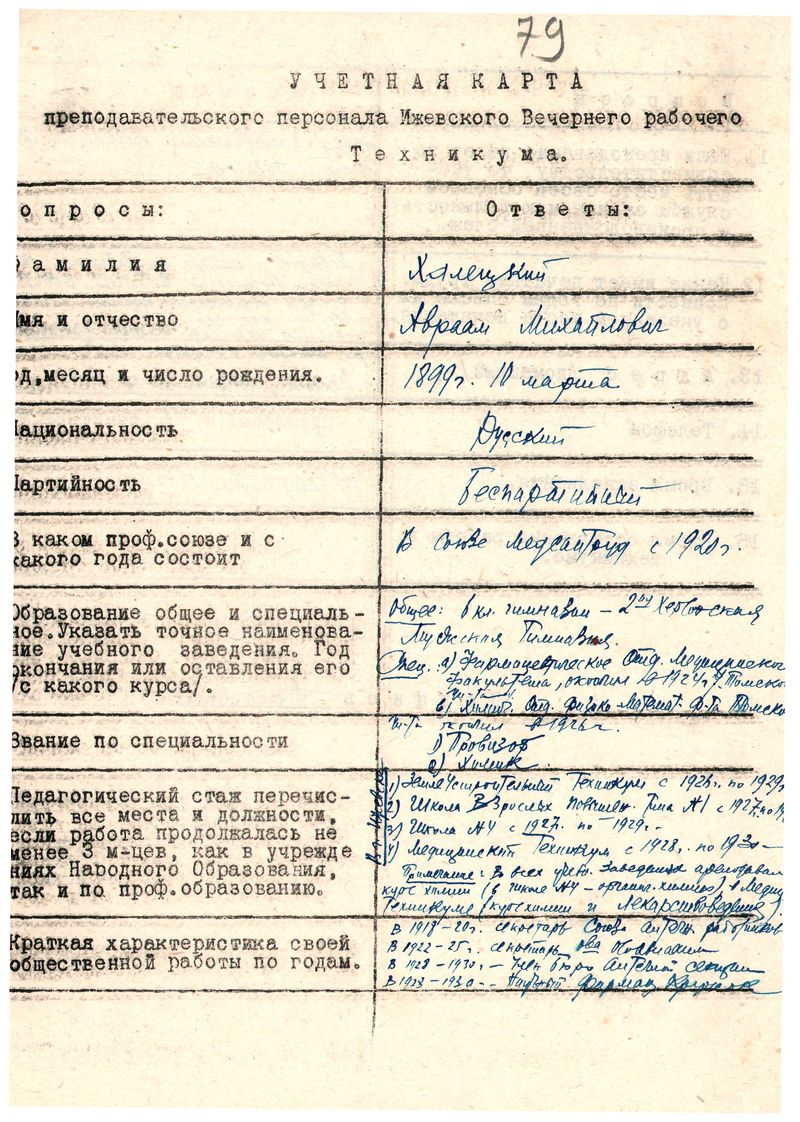 79
УЧЕТНАЯ КАРТА
преподавательского персонала Ижевского Вечернего рабочего
Техникума.
опросы:
Ответы:
амилия
Халецкий
Имя и отчество
Авраам Михайлович
од, месяц и число рождения.
1899г. 10 марта
Национальность
Русский
Партийность
Беспартийный
В каком проф.союзе и с
какого года состоит
В союзе Медсантруд с 1920г.
Образование общее и специаль-
ное.Указать точное наименова-
ние учебного заведения. Год
окончания или оставления его
/с какого курса/.
Общее: 8 кл. гимназии – 2ая Херсонская
Мужская Гимназия.
Спец. а) Фармацевтическое Отд. Медицинско
факультета, окончил в 1924г.
Томско
б) Химич. Отд. физико-математ. ф-та Томско
окончил в 1926г.
Звание по специальности
1) Провизор
2) Химик
Педагогический стаж перечис-
лить все места и должности,
если работа продолжалась не
менее 3 м-цев, как в учрежде
ниях Народного Образования,
так и по проф.образованию.
1) Землеустроительный Техникум с 1926г. по 1929г
2) Школа Взрослых повышен. типа №1 с 1927г. по 19
3) Школа №4 с 1927г. по 1929г.
4) Медицинский Техникум с 1928г. по 1930
Примечание: Во всех учебн. заведениях преподавал
курс химии (в школе №4 – органич. химию), в Медиц.
Техникуме (курс химии и лекарствоведения).
Краткая характеристика своей
общественной работы по годам.
В 1918–20г. секретарь Союза аптечн. работников
В 1922–25г. секретарь
В 1928–1930г. – Член бюро Аптечной секции
В 1928–1930 –